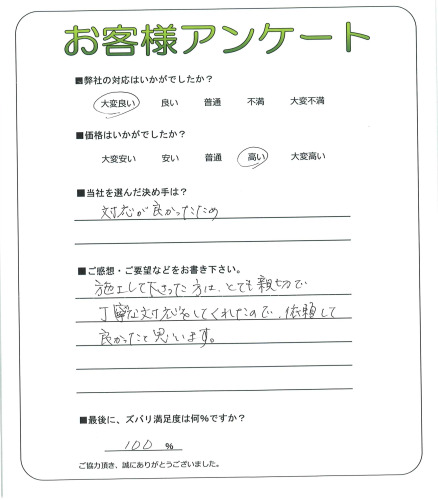 お客様アンケート
■弊社の対応はいかがでしたか？
大変良い 良い 普通 不満 大変不満
■価格はいかがでしたか？
大変安い 安い 普通 高い 大変高い
■当社を選んだ決め手は？
対応が良かったため
■ご感想・ご要望などをお書き下さい。
施工して下さった方は、とても親切で
丁寧な対応をしてくれたので、依頼して
良かったと思います。
■最後に、ズバリ満足度は何%ですか？
100 %
ご協力頂き、誠にありがとうございました。